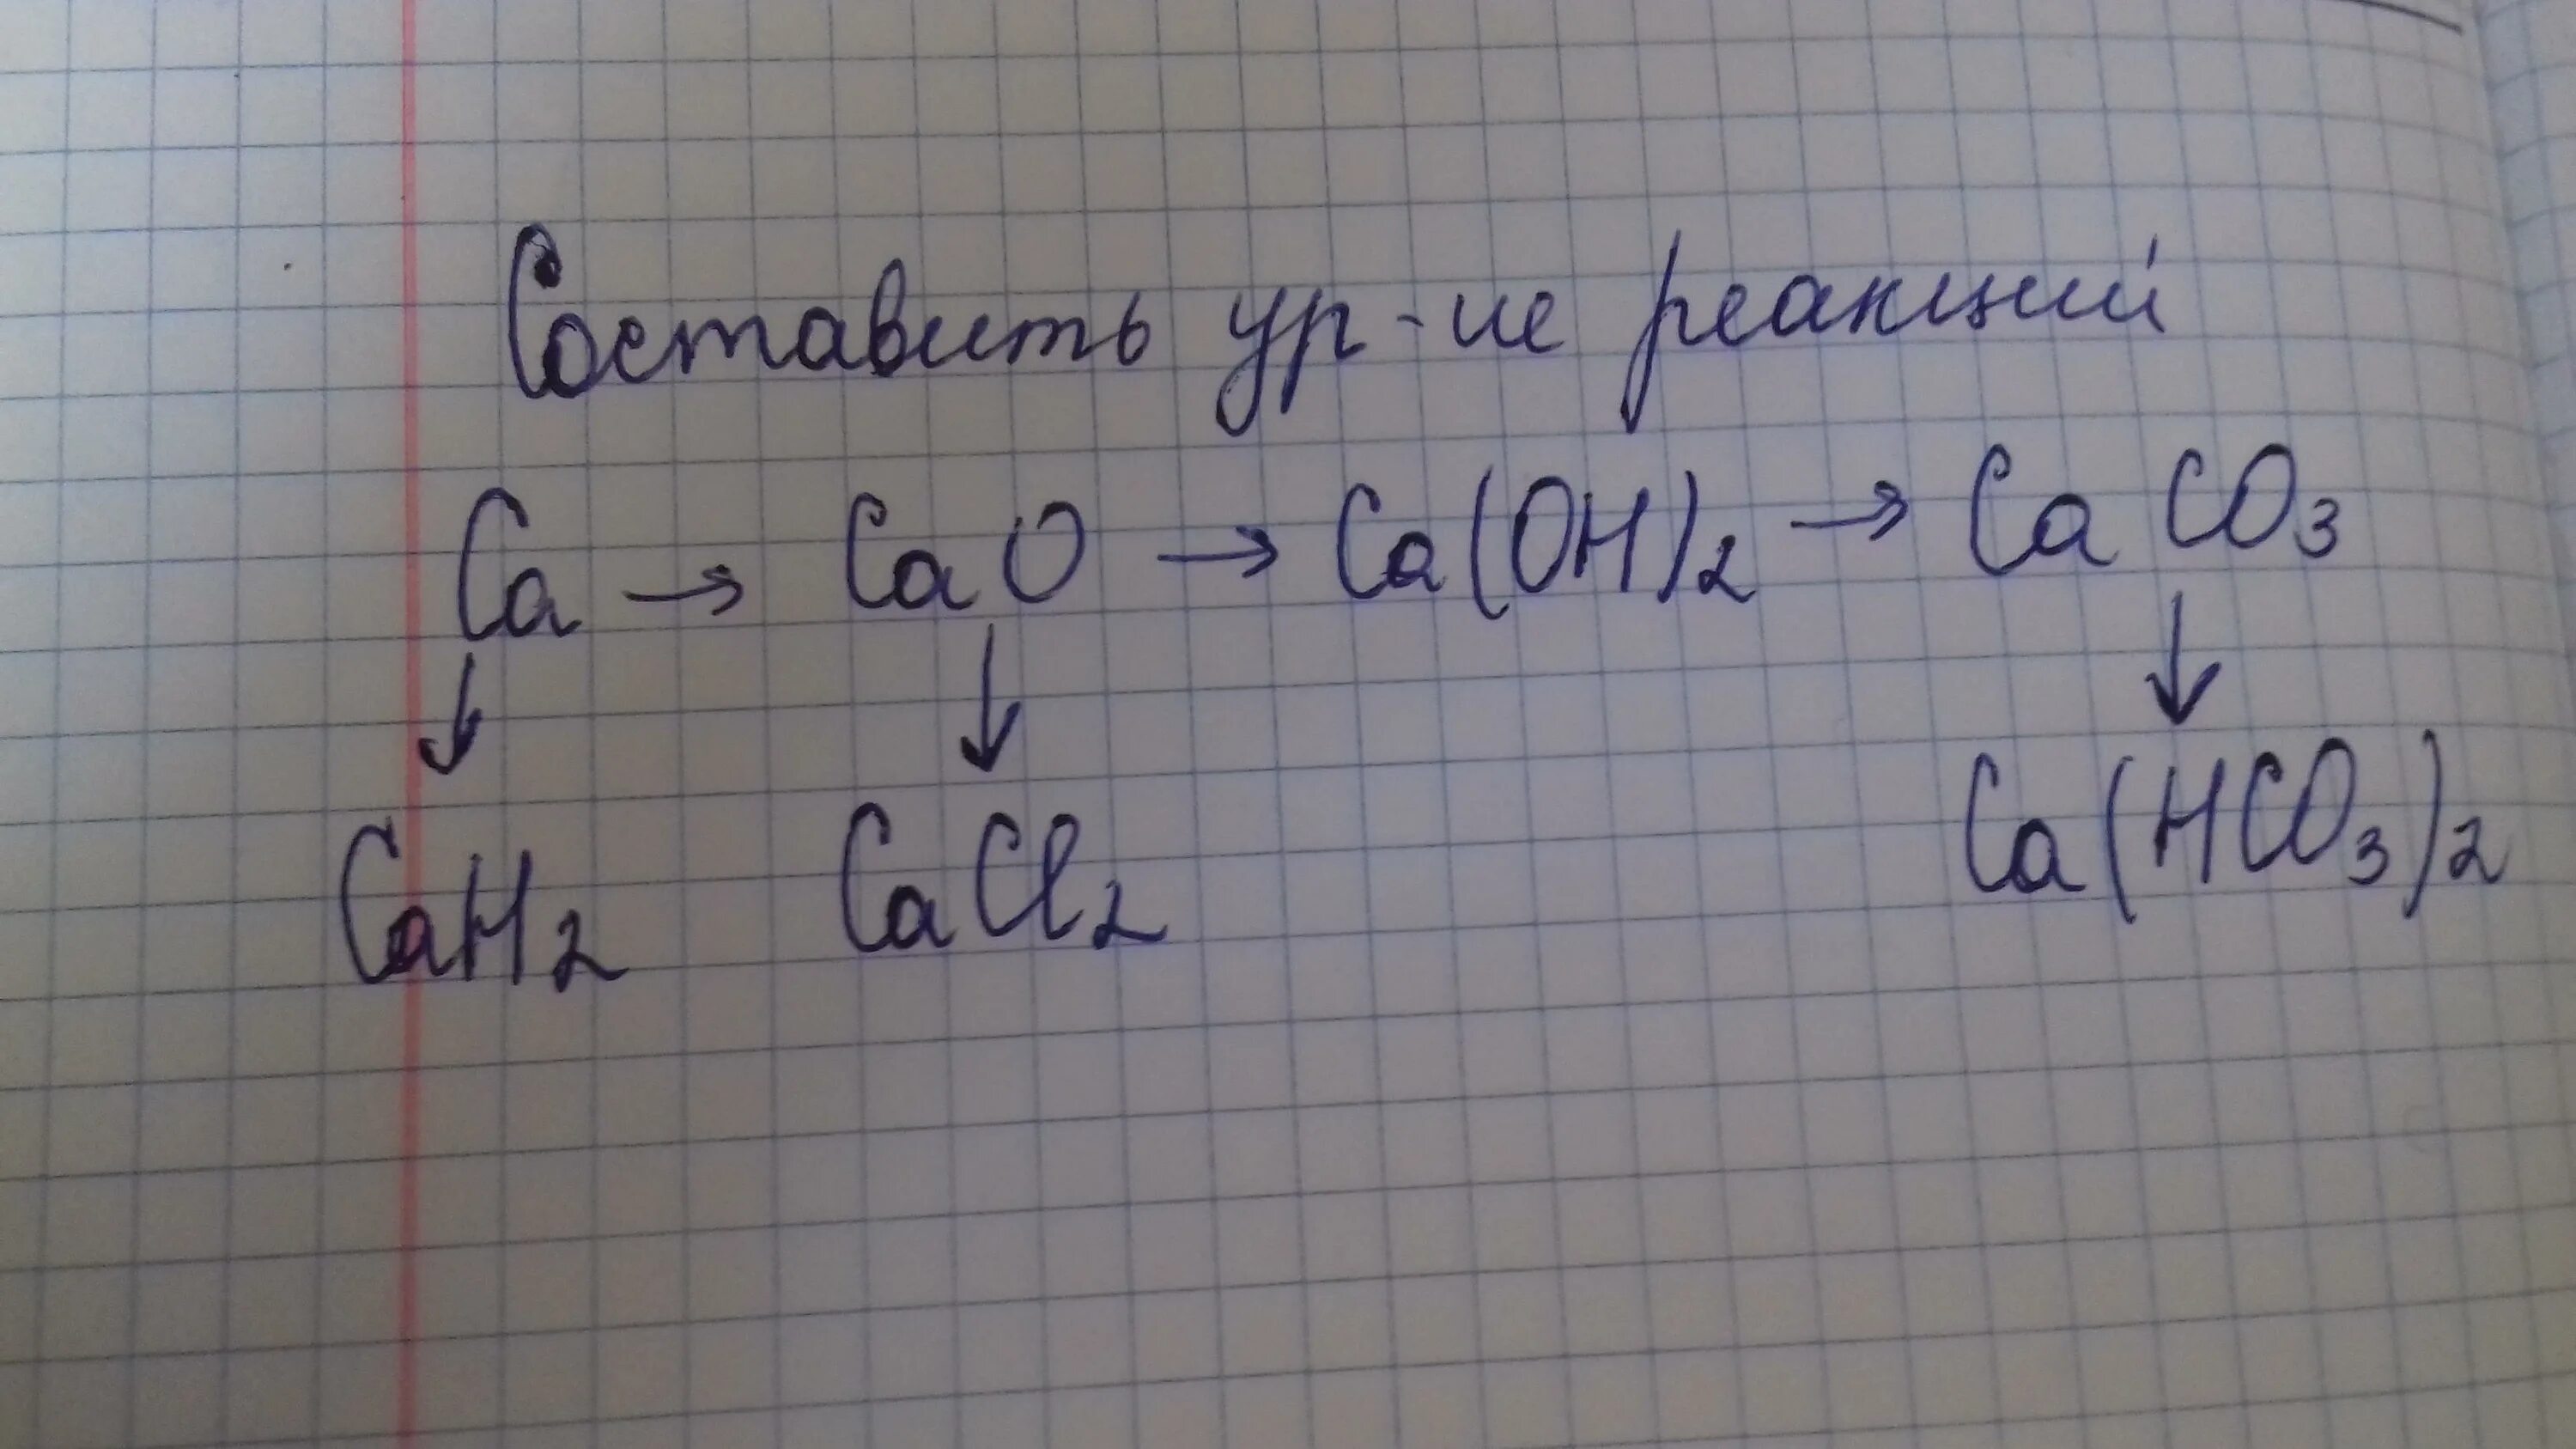 Составить ур-ие реакций
Ca → CaO → Ca(OH)₂ → CaCO₃
↓ ↓ ↓
CaH₂ CaCl₂ Ca(HCO₃)₂